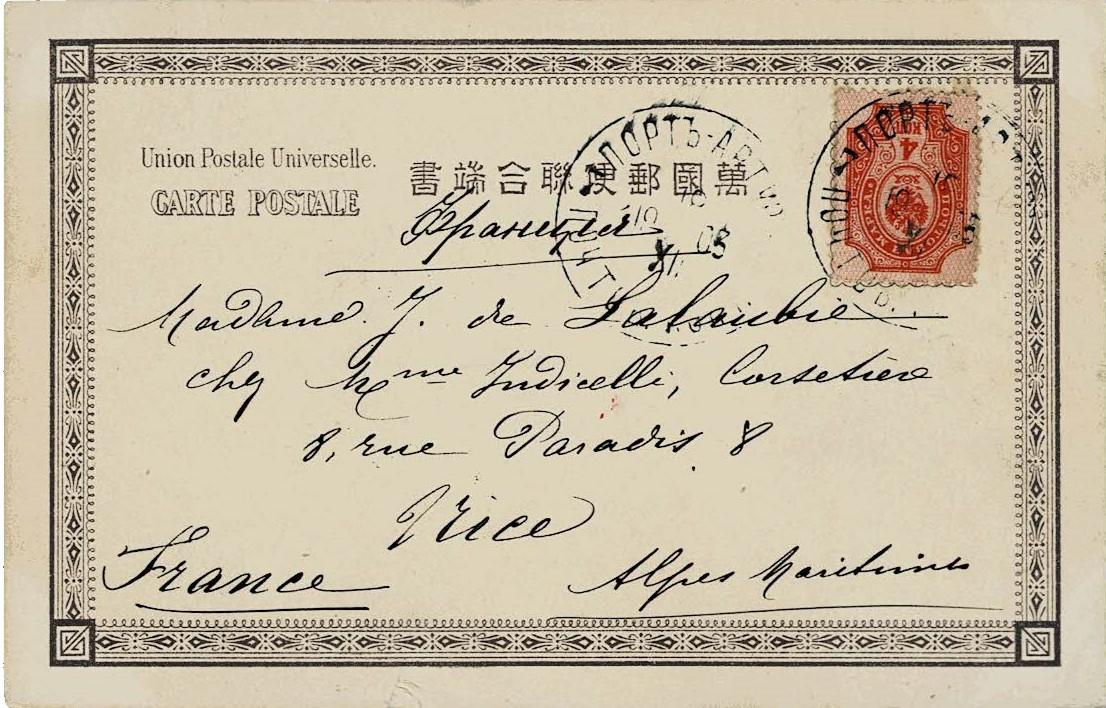 Union Postale Universelle.
CARTE POSTALE
書端合聯便郵國萬
Франция
Madame J. de Lalaubie
chez Mme Indicelli, Corsetière
8, rue Paradis 8
Nice
France
Alpes Maritimes
ПОРТЪ-АРТУР
ПОРТЪ
4